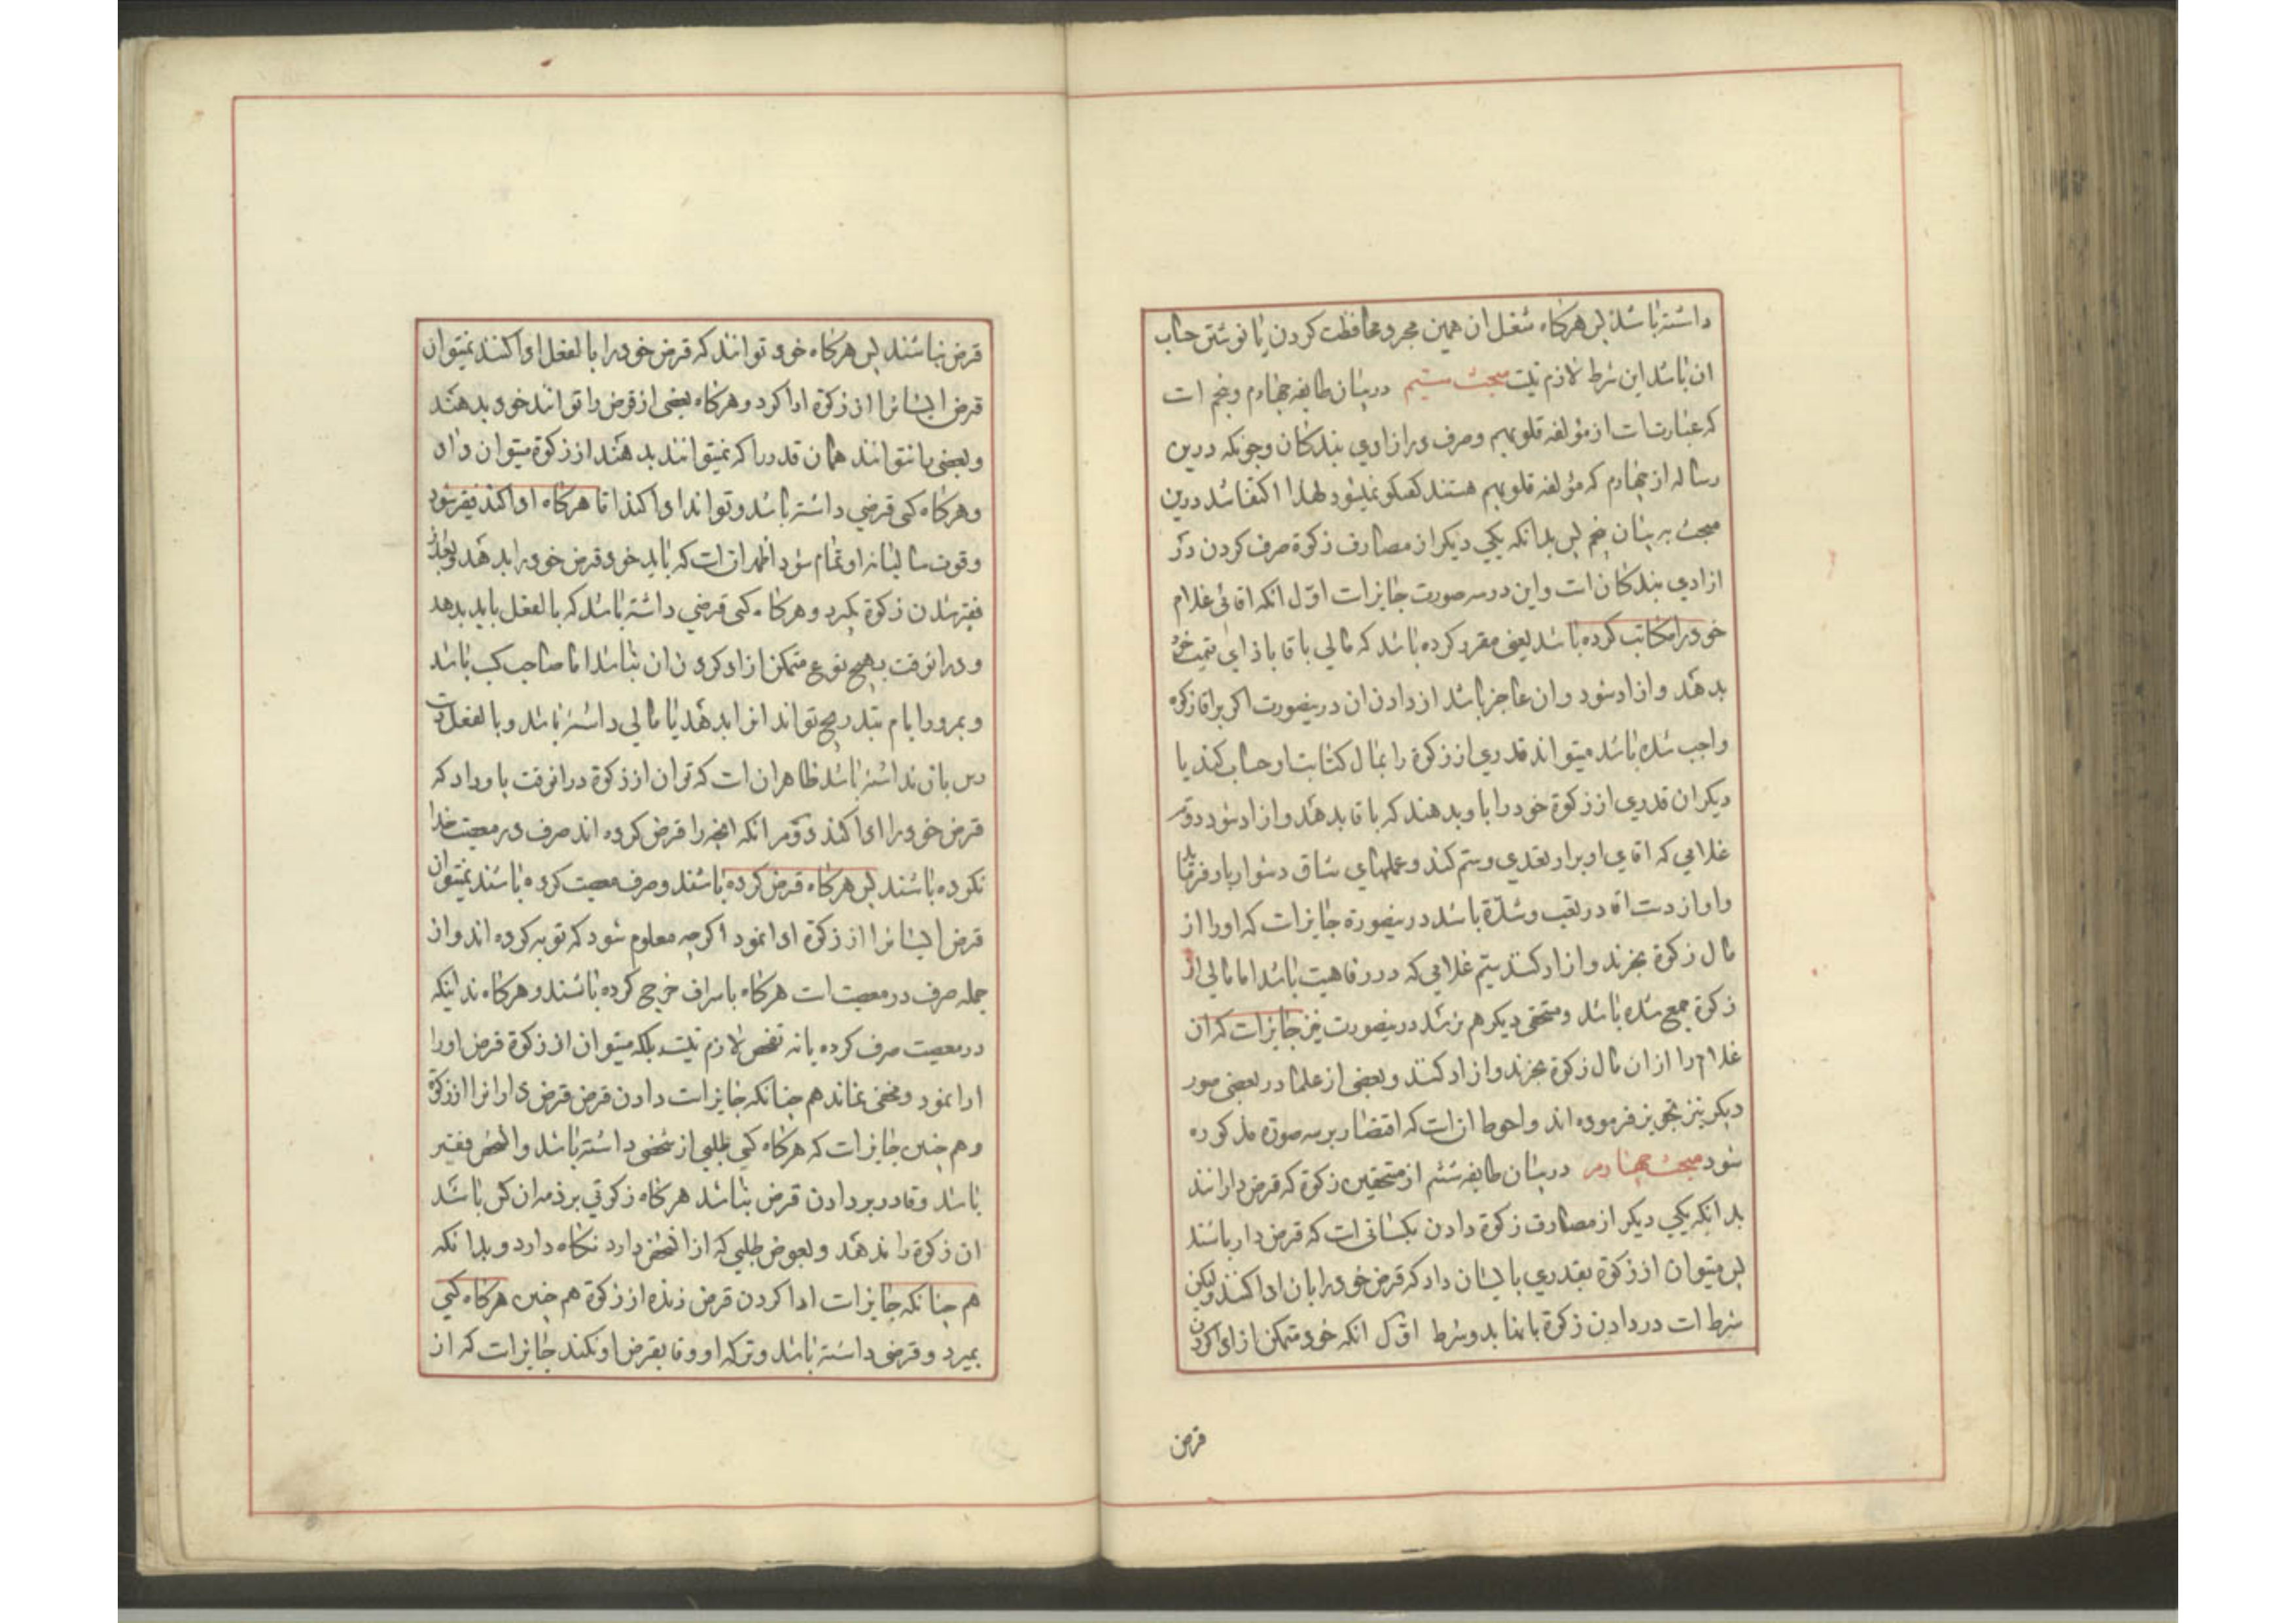 داشته باشد پس هرکاه شغل ان همین مجرد محافظت کردن یا نوشتن حساب
ان باشد این شرط لازم نیست مبحث سیم در بیان طایفه چهارم و پنجم است
که عبارتست از مؤلفه قلوبهم و صرف در ازادی بندکان و چونکه درین
رساله از چهارم که مؤلفه قلوبهم هستند کفتکو نمیشود لهذا اکتفا شد درین
مبحث بر بیان پنجم پس بدانکه یکی دیکر از مصارف زکوة صرف کردن در
ازادی بندکان است و این در سه صورت جایز است اوّل انکه اقائی غلام
خود را مکاتب کرده باشد یعنی مقرر کرده باشد که مالی باقا بازای قیمت خود
بدهد و ازاد شود و ان عاجز باشد از دادن ان درینصورت اکر بر اقا زکوة
واجب شده باشد میتواند قدری از زکوة را بمال کتابت او حساب کند یا
دیکران قدری از زکوة خود را باو بدهند که باقا بدهد و ازاد شود دوّم
غلامی که اقای او بر او تعدی و ستم کند و عملهای شاق دشوار باو فرماید
و او از دست اقا در تعب و شدّة باشد درینصورة جایز است که او را از
مال زکوة بخرند و ازاد کنند سیّم غلامی که در رفاهیت باشد اما مالی از
زکوة جمع شده باشد و مستحقی دیکر هم نرسد درینصورت نیز جایز است که ان
غلام را از ان مال زکوة بخرند و ازاد کنند و بعضی از علما در بعضی صور
دیکر نیز تجویز فرموده اند و احوط انست که اقتصار بر سه صورة مذکوره
شود مبحث چهارم در بیان طایفه ششم از مستحقین زکوة که قرض دارانند
بدانکه یکی دیکر از مصارف زکوة دادن بکسانی است که قرض دار باشند
پس میتوان از زکوة بقدری بایشان داد که قرض خود را بان ادا کنند ولیکن
شرط است در دادن زکوة باینها بدو شرط اوّل انکه خود متمکن از ادا کردن
قرض
قرض نباشند پس هرکاه خود توانند که قرض خود را بالفعل ادا کنند نمیتوان
قرض ایشانرا از زکوة ادا کرد و هرکاه بعضی از قرض را توانند خود بدهند
و بعضی را نتوانند همان قدر را که نمیتوانند بدهند از زکوة میتوان داد
و هرکاه کسی قرضی داشته باشد و تواند ادا کند اما هرکاه ادا کند فقیر شود
و قوت سالیانه او تمام شود اظهر انست که باید خود قرض خود را بدهد و بعد از
فقیر شدن زکوة بکیرد و هرکاه کسی قرضی داشته باشد که بالفعل باید بدهد
و در انوقت بهیچ نوع متمکن از ادا کردن ان نباشد اما صاحب کسب باشد
و بمرور ایام بتدریج تواند انرا بدهد یا مالی داشته باشد و بالفعل دست
رس بان نداشته باشد ظاهر ان است که توان از زکوة در انوقت باو داد که
قرض خود را ادا کند دوّم انکه انچه را قرض کرده اند صرف در معصیت خدا
نکرده باشند پس هرکاه قرض کرده باشند و صرف معصیت کرده باشند نمیتوان
قرض ایشانرا از زکوة ادا نمود اکرچه معلوم شود که توبه کرده اند و از
جمله صرف در معصیت است هرکاه باسراف خرج کرده باشند و هرکاه ندانیکه
در معصیت صرف کرده یا نه تفحص لازم نیست بلکه میتوان از زکوة قرض او را
ادا نمود و مخفی نماند همچنانکه جایز است دادن قرض قرض دارانرا از زکوة
و همچنین جایز است که هرکاه کسی طلبی از شخصی داشته باشد و انشخص فقیر
باشد و قادر بر دادن قرض نباشد هرکاه زکوتی بر ذمه ان کس باشد
ان زکوة را ندهد و بعوض طلبی که از انشخص دارد نکاه دارد و بدانکه
همچنانکه جایز است ادا کردن قرض زنده از زکوة همچنین هرکاه کسی
بمیرد و قرضی داشته باشد و ترکه او وفا بقرض او نکند جایز است که از